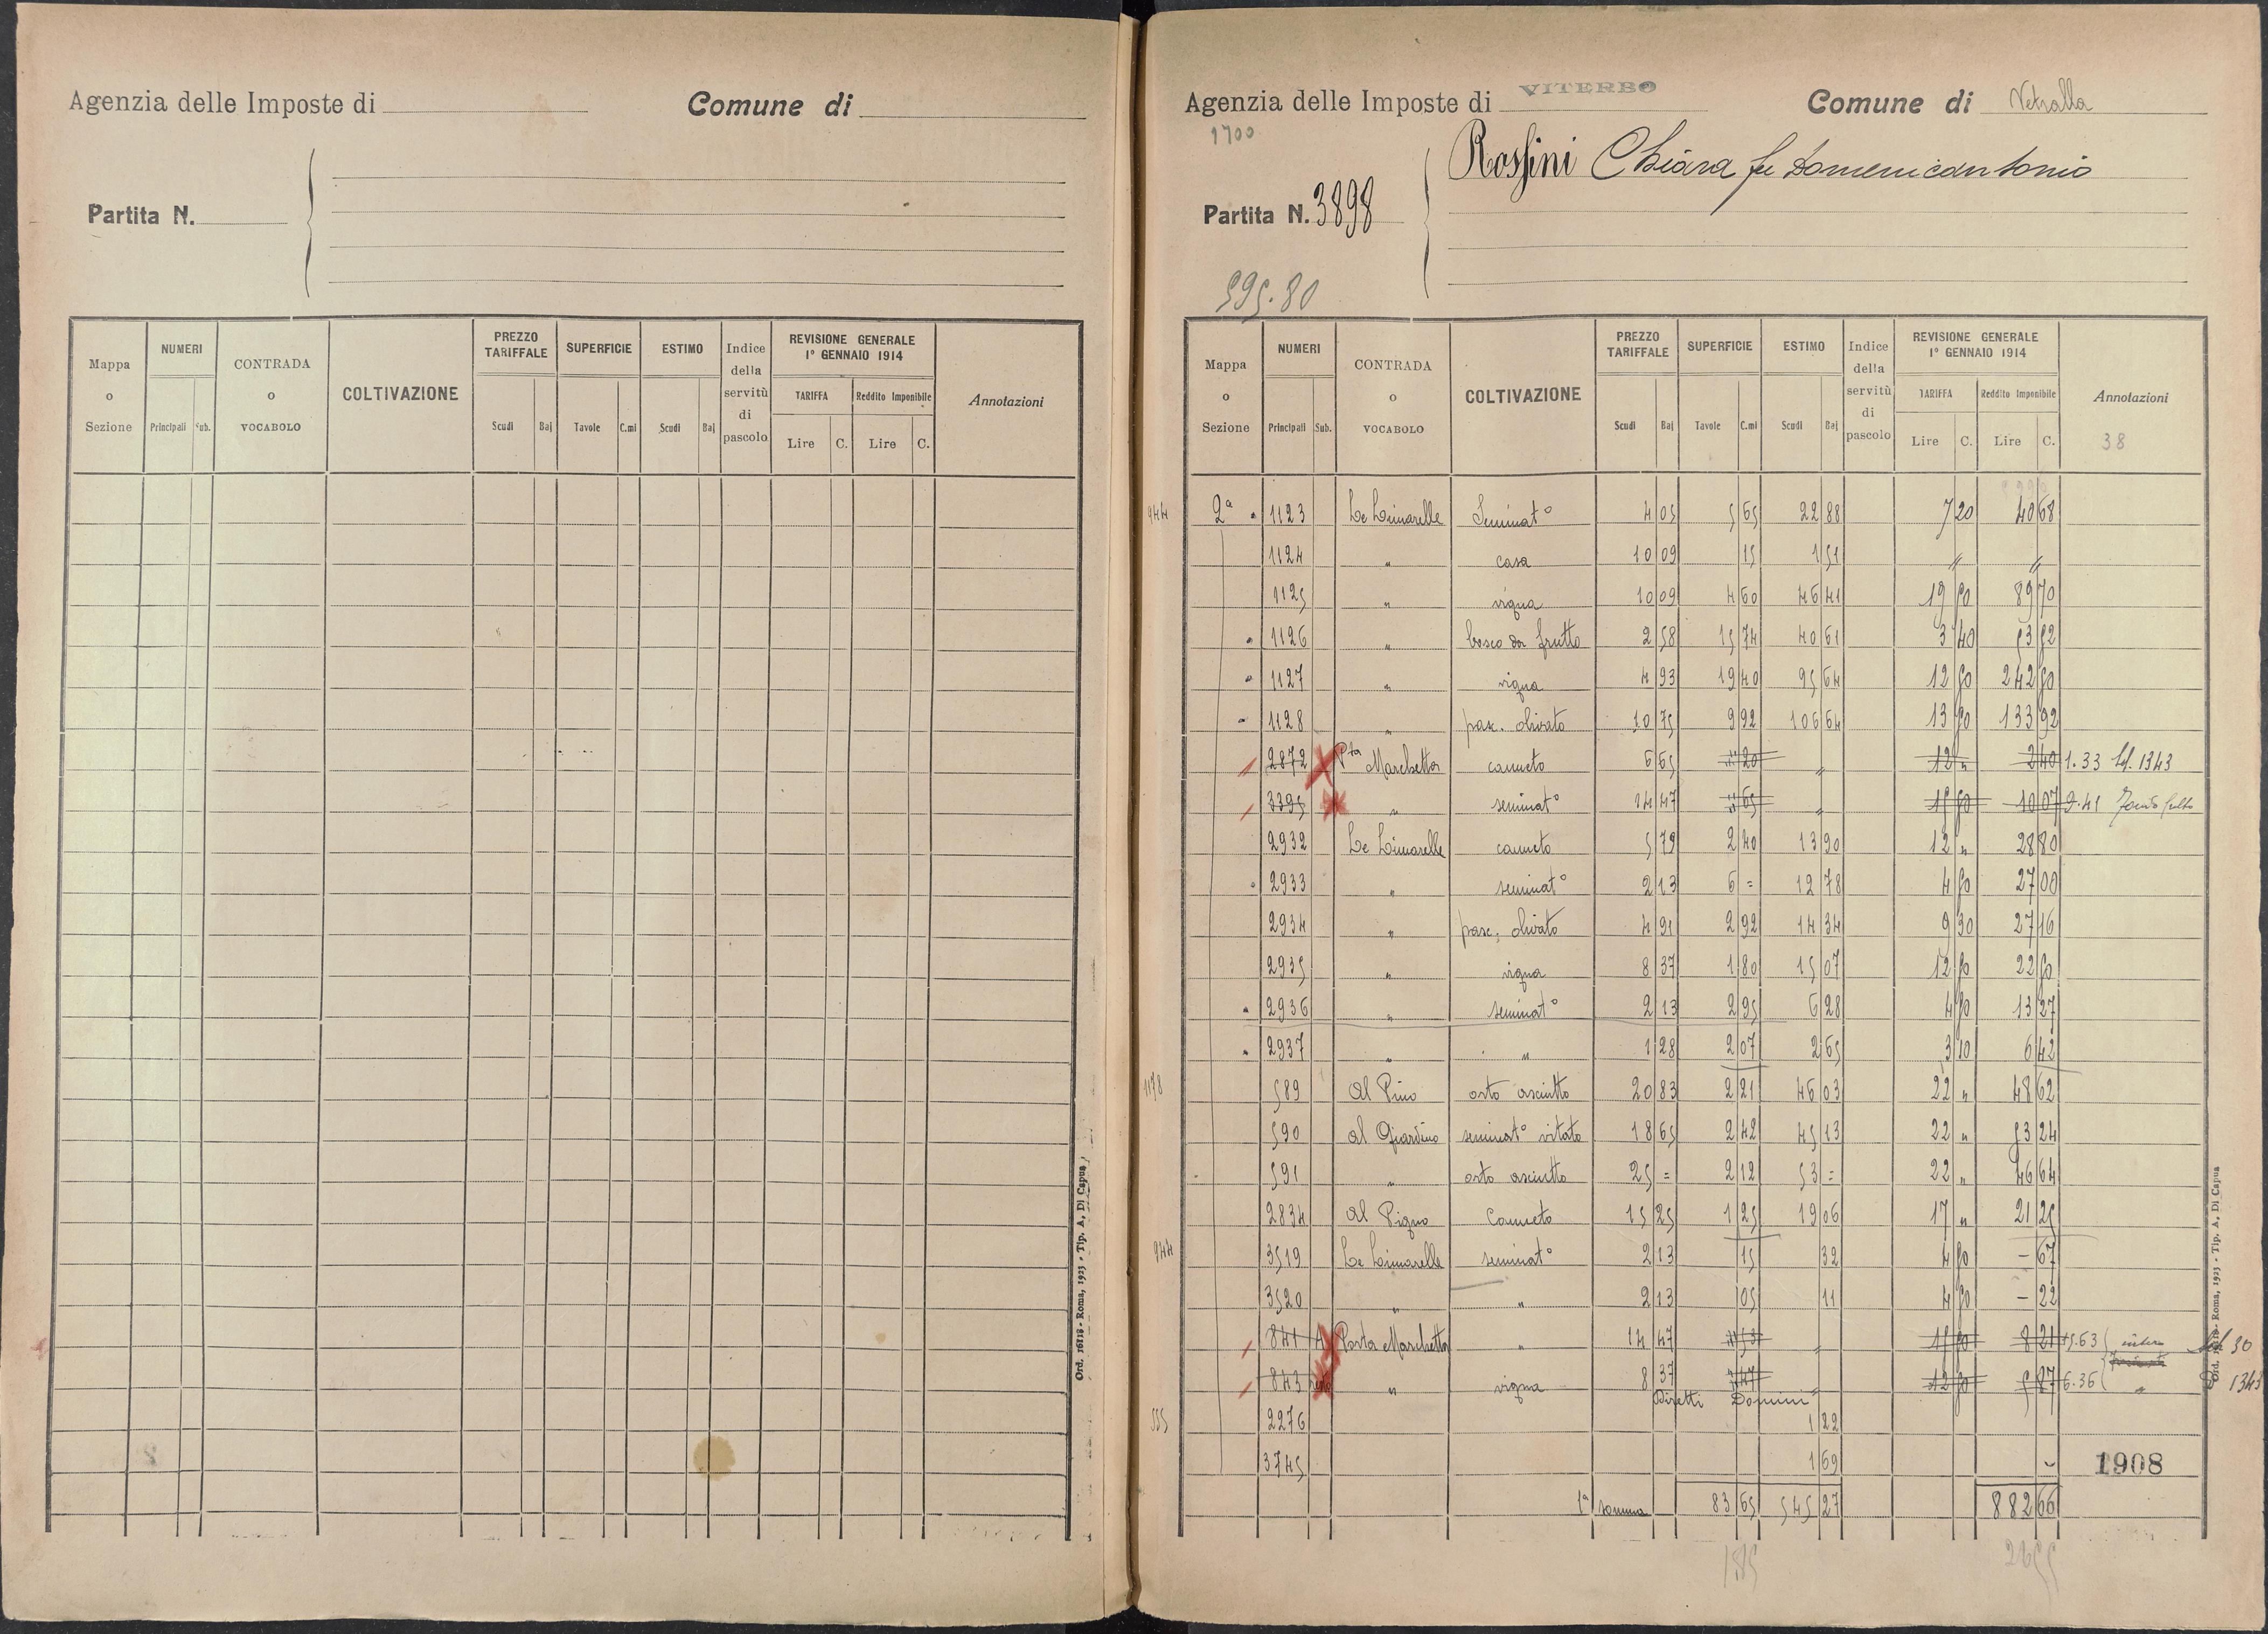 Agenzia delle Imposte di Comune di
Partita N.
Mappa o Sezione NUMERI Principali Sub. CONTRADA o VOCABOLO COLTIVAZIONE PREZZO TARIFFALE Scudi Baj SUPERFICIE Tavole C.mi ESTIMO Scudi Baj Indice della servitù di pascolo REVISIONE GENERALE 1° GENNAIO 1914 TARIFFA Lire C. Reddito Imponibile Lire C. Annotazioni
Ord. 16118 - Roma, 1923 - Tip. A. Di Capua
Agenzia delle Imposte di VITERBO Comune di Vetralla
1700
Rossini Chiara fu Domenicantonio
Partita N. 3898
595.80
Mappa o Sezione NUMERI Principali Sub. CONTRADA o VOCABOLO COLTIVAZIONE PREZZO TARIFFALE Scudi Baj SUPERFICIE Tavole C.mi ESTIMO Scudi Baj Indice della servitù di pascolo REVISIONE GENERALE 1° GENNAIO 1914 TARIFFA Lire C. Reddito Imponibile Lire C. Annotazioni
38
944 2a 1123 Le Limarelle Seminat° 4 05 5 65 22 88 7 20 40 68
1124 " casa 10 09 15 1 51 " "
1125 " vigna 10 09 4 60 46 41 19 50 89 70
1126 " bosco da frutto 2 58 15 74 40 61 3 40 53 52
1127 " vigna 4 93 19 40 95 64 12 50 242 50
1128 " pasc. olivato 10 75 9 92 106 64 13 50 133 92
2872 Pta Marchetta canneto 6 65 " 20 " 12 " 2 40 1.33 1343
3395 " seminat° 14 47 " 65 " 15 50 10 07 9.41
2932 Le Limarelle canneto 5 79 2 40 13 90 12 " 28 80
2933 " seminat° 2 13 6 = 12 78 4 50 27 00
2934 " pasc. olivato 4 91 2 92 14 34 9 30 27 16
2935 " vigna 8 37 1 80 15 07 12 50 22 50
2936 " seminat° 2 13 2 95 6 28 4 50 13 27
2937 " " 1 28 2 07 2 65 3 10 6 42
1178 589 Al Pino orto asciutto 20 83 2 21 46 03 22 " 48 62
590 al Giardino seminat° vitato 18 65 2 42 45 13 22 " 53 24
591 " orto asciutto 25 = 2 12 53 = 22 " 46 64
2834 al Pigno Canneto 15 25 1 25 19 06 17 " 21 25
944 3519 Le Limarelle seminat° 2 13 15 32 4 50 - 67
3520 " " 2 13 05 11 4 50 - 22
841 A Porta Marchetta " 14 47 " 53 " 15 50 8 21 intero 30
843 " vigna 8 37 47 " 12 50 5 87 6.36 " 1343
Diretti Domini
555 2276 1 22
3745 1 69 1908
1a somma 83 65 545 27 882 66
185 2655
Ord. 16118 - Roma, 1923 - Tip. A. Di Capua